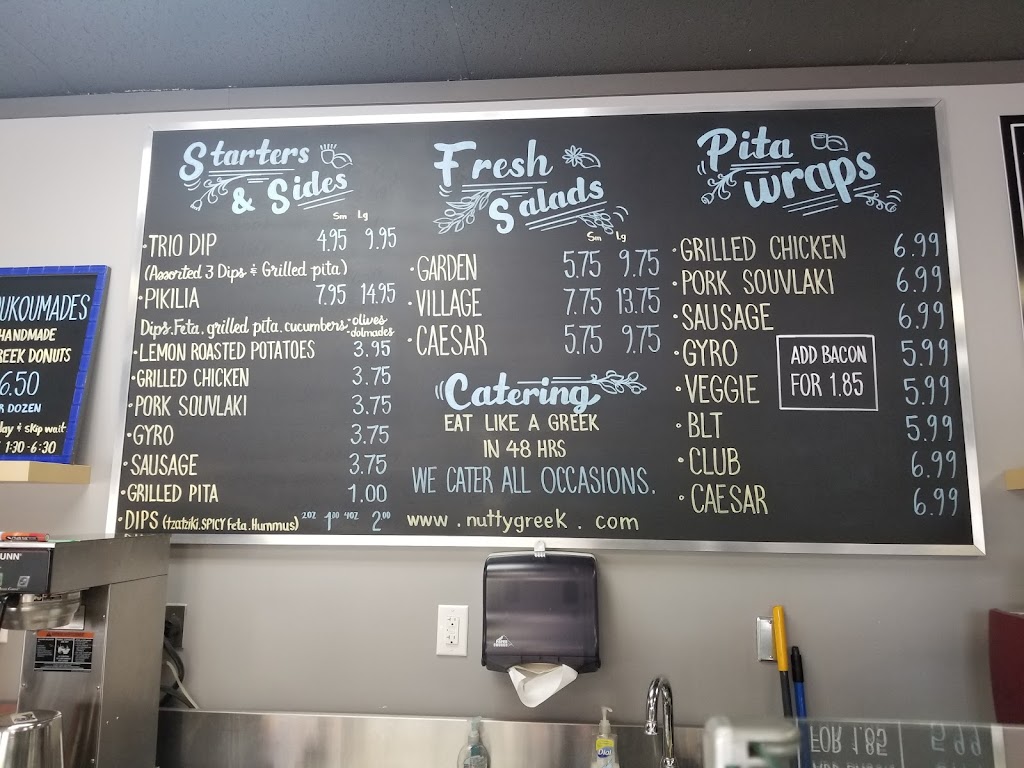 Starters
& Sides
Sm Lg
·TRIO DIP 4.95 9.95
(Assorted 3 Dips & Grilled pita)
·PIKILIA 7.95 14.95
Dips.Feta.grilled pita.cucumbers-olives
-dolmades
·LEMON ROASTED POTATOES 3.95
·GRILLED CHICKEN 3.75
·PORK SOUVLAKI 3.75
·GYRO 3.75
·SAUSAGE 3.75
·GRILLED PITA 1.00
·DIPS (tzatziki.SPICY feta.Hummus) 2oz 1.00 4oz 2.00
Fresh
Salads
Sm Lg
·GARDEN 5.75 9.75
·VILLAGE 7.75 13.75
·CAESAR 5.75 9.75
Catering
EAT LIKE A GREEK
IN 48 HRS
WE CATER ALL OCCASIONS.
www.nuttygreek.com
Pita
wraps
·GRILLED CHICKEN 6.99
·PORK SOUVLAKI 6.99
·SAUSAGE 6.99
·GYRO 5.99
·VEGGIE 5.99
·BLT 5.99
·CLUB 6.99
·CAESAR 6.99
ADD BACON
FOR 1.85
OUKOUMADES
HANDMADE
REEK DONUTS
6.50
R DOZEN
ay & skip wait
1:30-6:30
UNN
Dial
FOR 1.85 5.99